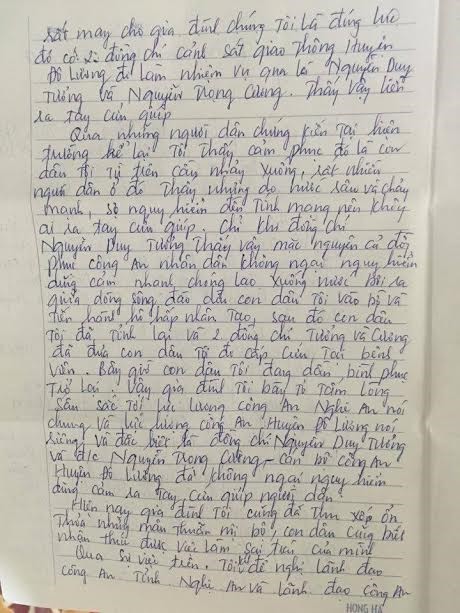 rất may cho gia đình chúng Tôi là đúng lúc
đó có 2 đồng chí cảnh sát giao Thông Huyện
Đô Lương đi làm nhiệm vụ qua là Nguyễn Duy
Tưởng và Nguyễn Trọng Cương. Thấy vậy liền
ra tay cứu giúp
Qua những người dân chứng kiến Tại hiện
trường kể lại Tôi Thấy cảm phục đó là con
dâu tôi tự tiến cầu nhảy xuống, rất nhiều
người dân ở đó Thấy nhưng do nước sâu và chảy
mạnh, sợ nguy hiểm đến Tính mạng nên không
ai ra tay cứu giúp. Chỉ khi đồng chí
Nguyễn Duy Tưởng Thấy vậy mặc nguyên cả đồ
phục công An nhân dân không ngại nguy hiểm
dũng cảm nhanh chóng lao xuống nước bơi ra
giữa dòng sông đào đưa con dâu Tôi vào bờ và
tiến hành hô hấp nhân Tạo, sau đó con dâu
Tôi đã Tỉnh lại và 2 đồng chí Tưởng và Cương
đã đưa con dâu Tôi đi cấp cứu Tại bệnh
viện. Bây giờ con dâu Tôi đang dần bình phục
Trở lại. Vậy gia đình Tôi bày tỏ Tấm lòng
sâu sắc Tới lực lượng công An Nghệ An nói
chung và lực lượng công An Huyện Đô Lương nói
riêng, và đặc biệt là đồng chí Nguyễn Duy Tưởng
và đ/c Nguyễn Trọng Cương - Cán bộ công An
Huyện Đô Lương đã không ngại nguy hiểm
dũng cảm ra tay cứu giúp người dân.
Hiện nay gia đình Tôi cũng đã Thu xếp ổn
Thỏa những mâu Thuẫn nội bộ, con dâu cũng biết
nhận thức được việc làm sai trái của mình
Qua sự việc trên. Tôi đề nghị lãnh đạo
công An Tỉnh Nghệ An và lãnh đạo công An
HONG HÀ